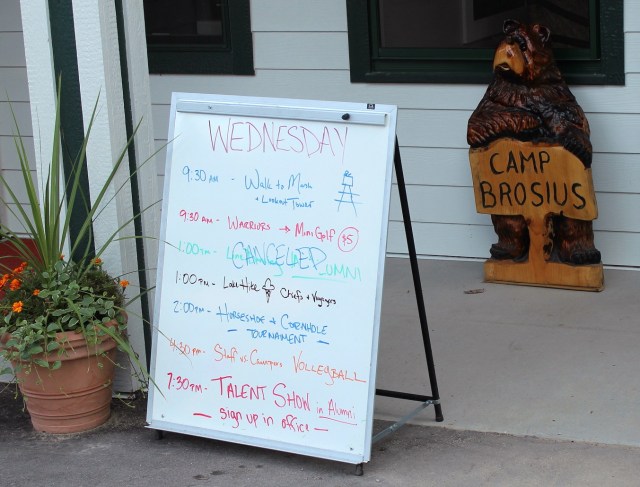 WEDNESDAY
9:30 AM - Walk to Marsh
+ Lookout Tower
9:30 AM - WARRIORS → Mini Golf $5
1:00 PM - CANCELED ALUMNI
1:00 PM - Lake Hike Chiefs + Voyagers
2:00 PM - HORSESHOE + CORNHOLE
- TOURNAMENT -
4:30 PM - Staff vs Campers VOLLEYBALL
7:30 PM - TALENT SHOW in Alumni
- sign up in office -
CAMP
BROSIUS